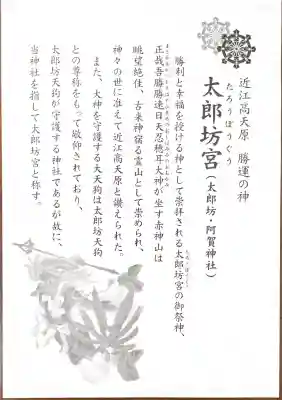 近江高天原　勝運の神
たろうぼうぐう
太郎坊宮（太郎坊・阿賀神社）
勝利と幸福を授ける神として崇拝される太郎坊宮の御祭神、
正哉吾勝勝速日天忍穂耳大神が坐す赤神山は
眺望絶佳、古来神宿る霊山として崇められ、
神々の世に准えて近江高天原と讃えられた。
また、大神を守護する大天狗は太郎坊天狗
との尊称をもって敬仰されており、
太郎坊天狗が守護する神社であるが故に、
当神社を指して太郎坊宮と称す。